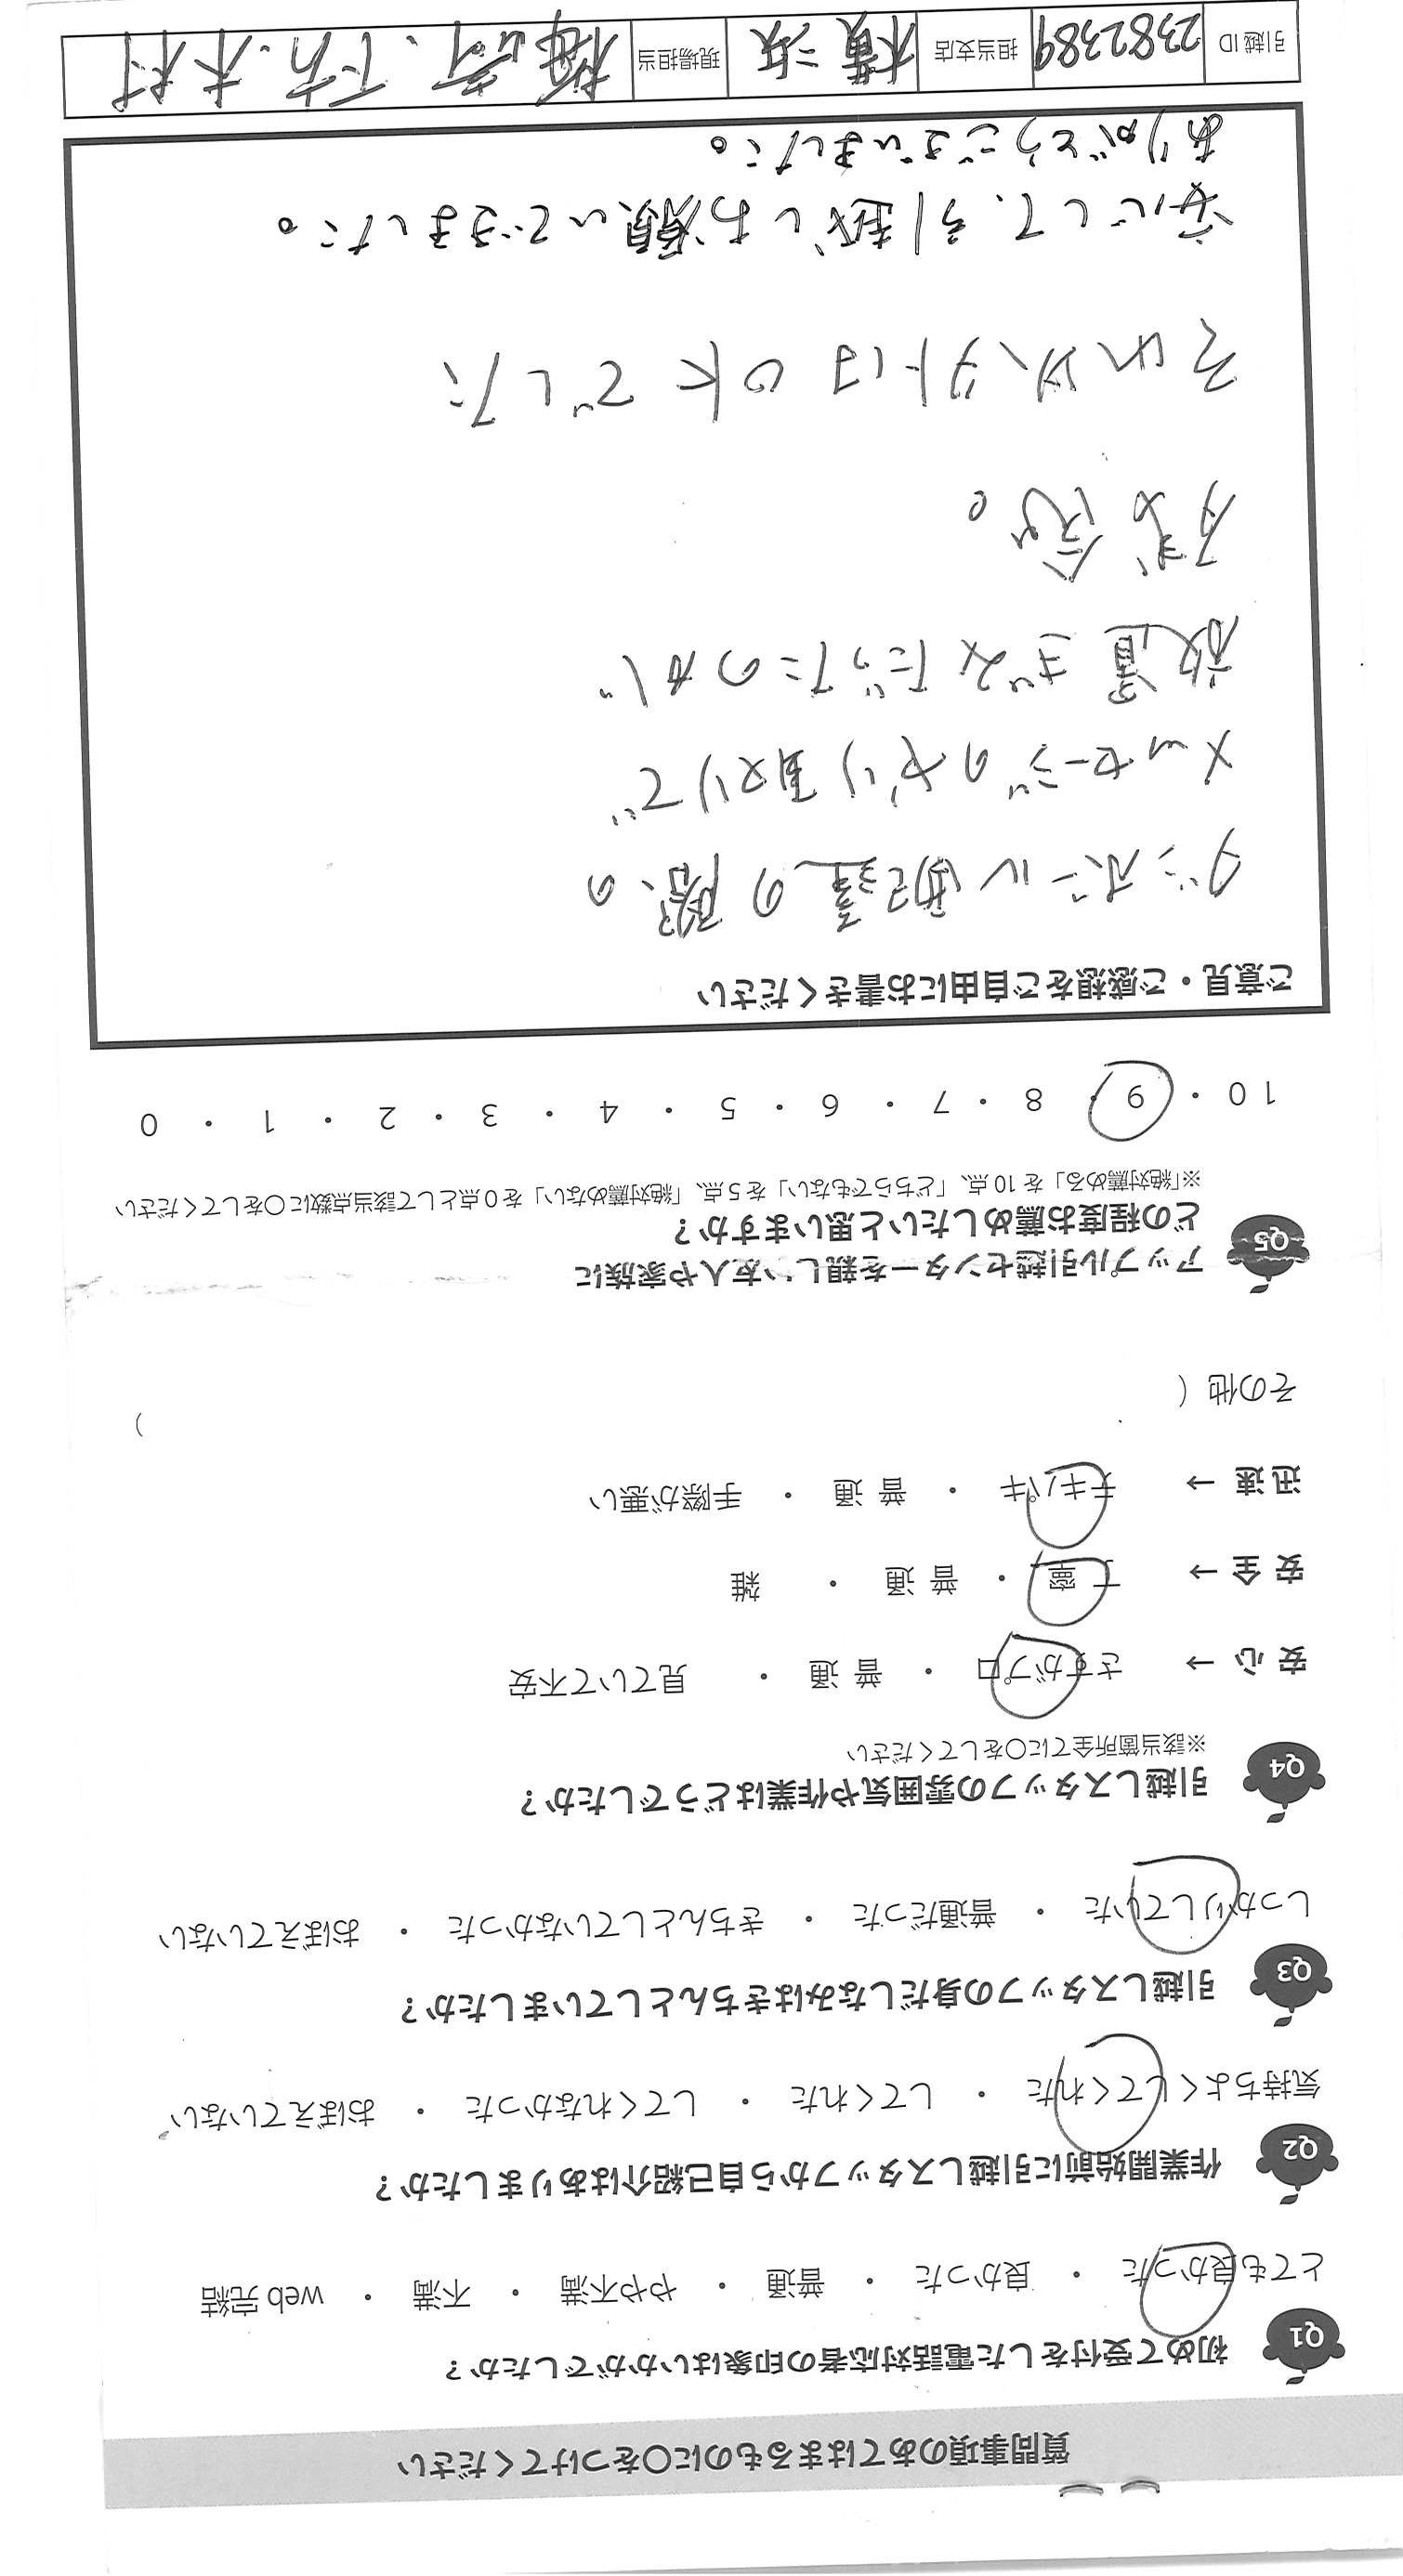 質問事項のあてはまるものに〇をつけてください
Q1 初めて受付をした電話対応者の印象はいかがでしたか？
とても良かった ・ 良かった ・ 普通 ・ やや不満 ・ 不満 ・ web完結
Q2 作業開始前に引越しスタッフから自己紹介はありましたか？
気持ちよくしてくれた ・ してくれた ・ してくれなかった ・ おぼえていない
Q3 引越しスタッフの身だしなみはきちんとしていましたか？
しっかりしていた ・ 普通だった ・ きちんとしていなかった ・ おぼえていない
Q4 引越しスタッフの雰囲気や作業はどうでしたか？
※該当箇所全てに〇をしてください
安心 → さすがプロ ・ 普通 ・ 見ていて不安
安全 → 丁寧 ・ 普通 ・ 雑
迅速 → テキパキ ・ 普通 ・ 手際が悪い
その他（ ）
Q5 アップル引越センターを親しい友人や家族に
どの程度お薦めしたいと思いますか？
※「絶対薦める」を10点、「どちらでもない」を5点、「絶対薦めない」を0点として該当点数に〇をしてください
10 ・ 9 ・ 8 ・ 7 ・ 6 ・ 5 ・ 4 ・ 3 ・ 2 ・ 1 ・ 0
ご意見・ご感想をご自由にお書きください
ダンボール配達の際の
メッセージのやり取りで
放置ぎみだったのが
残念。
それ以外はOKでした
安心して、引越しお願いできました。
ありがとうございました。
引越ID 2382389 担当支店 横浜 現場担当 木村